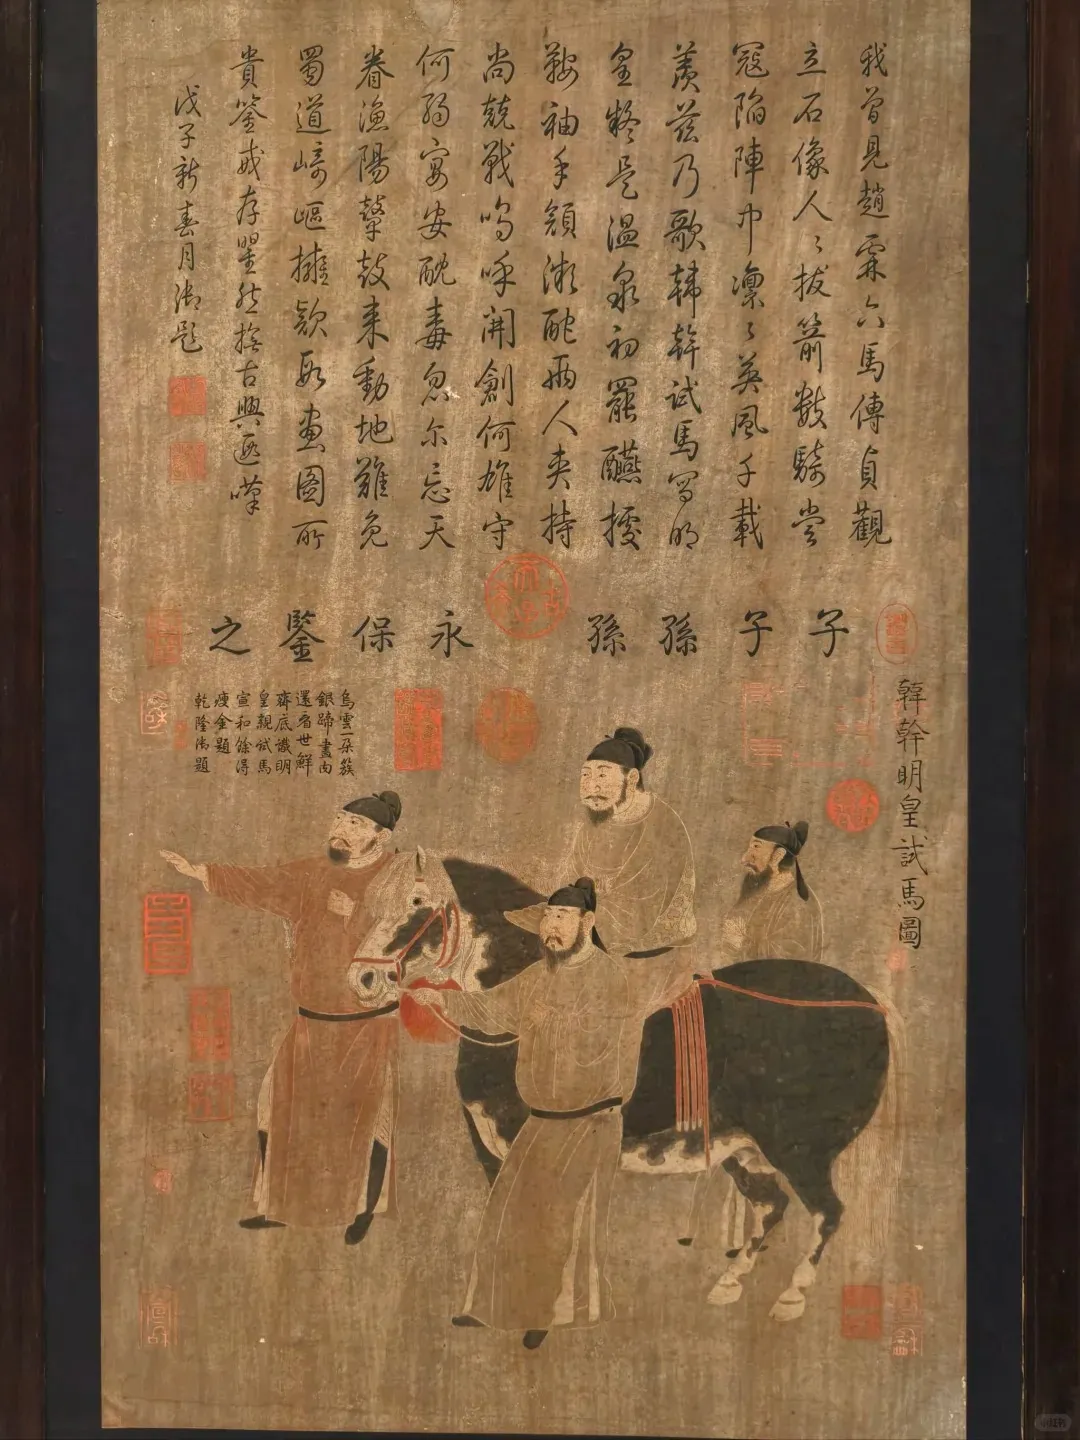 我曾見趙霖六馬傳貞觀
立石像人〻拔箭數騎嘗
寇陷陣中凛〻英風千載
羨茲乃歌韓幹試馬写明
皇疑是溫泉初罷醼據
鞍袖手顏微酡兩人夾持
尚兢戰嗚呼開創何雄守
何弱宴安酖毒忽尔忘天
眷漁陽鼙鼓来動地難免
蜀道崎嶇擁款段畫圖所
貴鑒戒存瞿然撫古興遐嘆
戊子新春月御題
子子孫孫永保鑒之
韓幹明皇試馬圖
烏雲一朵簇
銀蹄畫肉
還看世鮮
齋底識明
皇親試馬
宣和餘得
瘦金題
乾隆御題